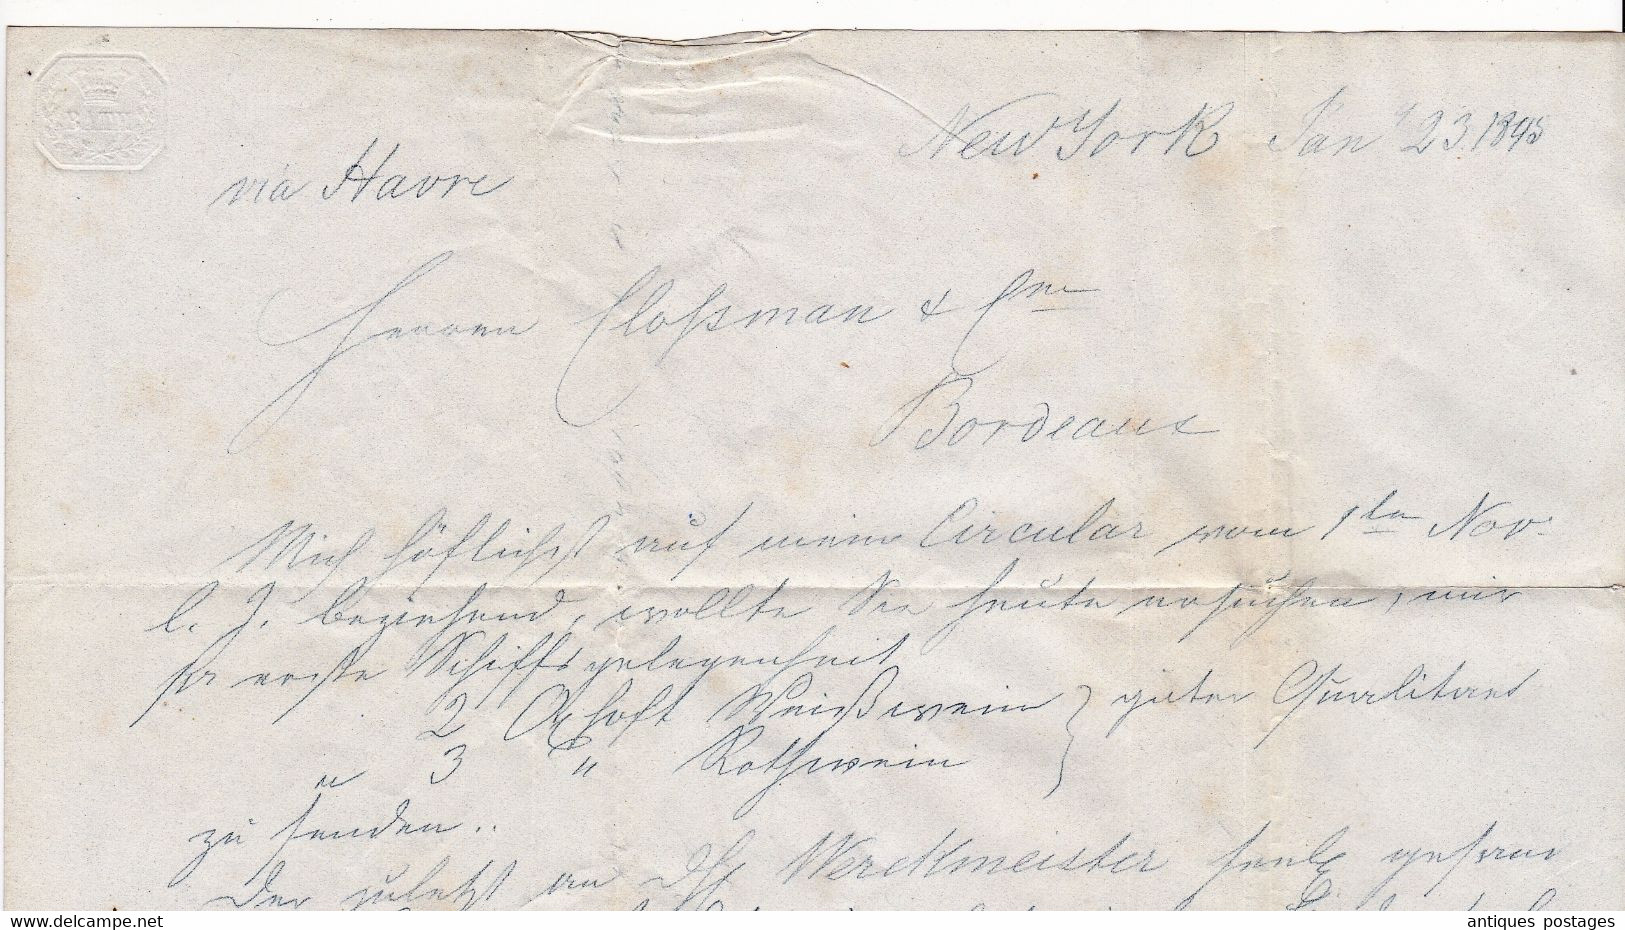 BATH
New York Jan 23. 1845
via Havre
Herren Cloßman & Cie
Bordeaux
Mich höflichst auf mein Circular vom 1ten Nov.
l. J. beziehend, wollte Sie heute ersuchen, mir
pr erste Schiffsgelegenheit
2 Oxhoft Weißwein } guter Qualitaet
u 3 " Rothwein
zu senden..
Der zuletzt an Werckmeister
www.delcampe.net
antiques postages